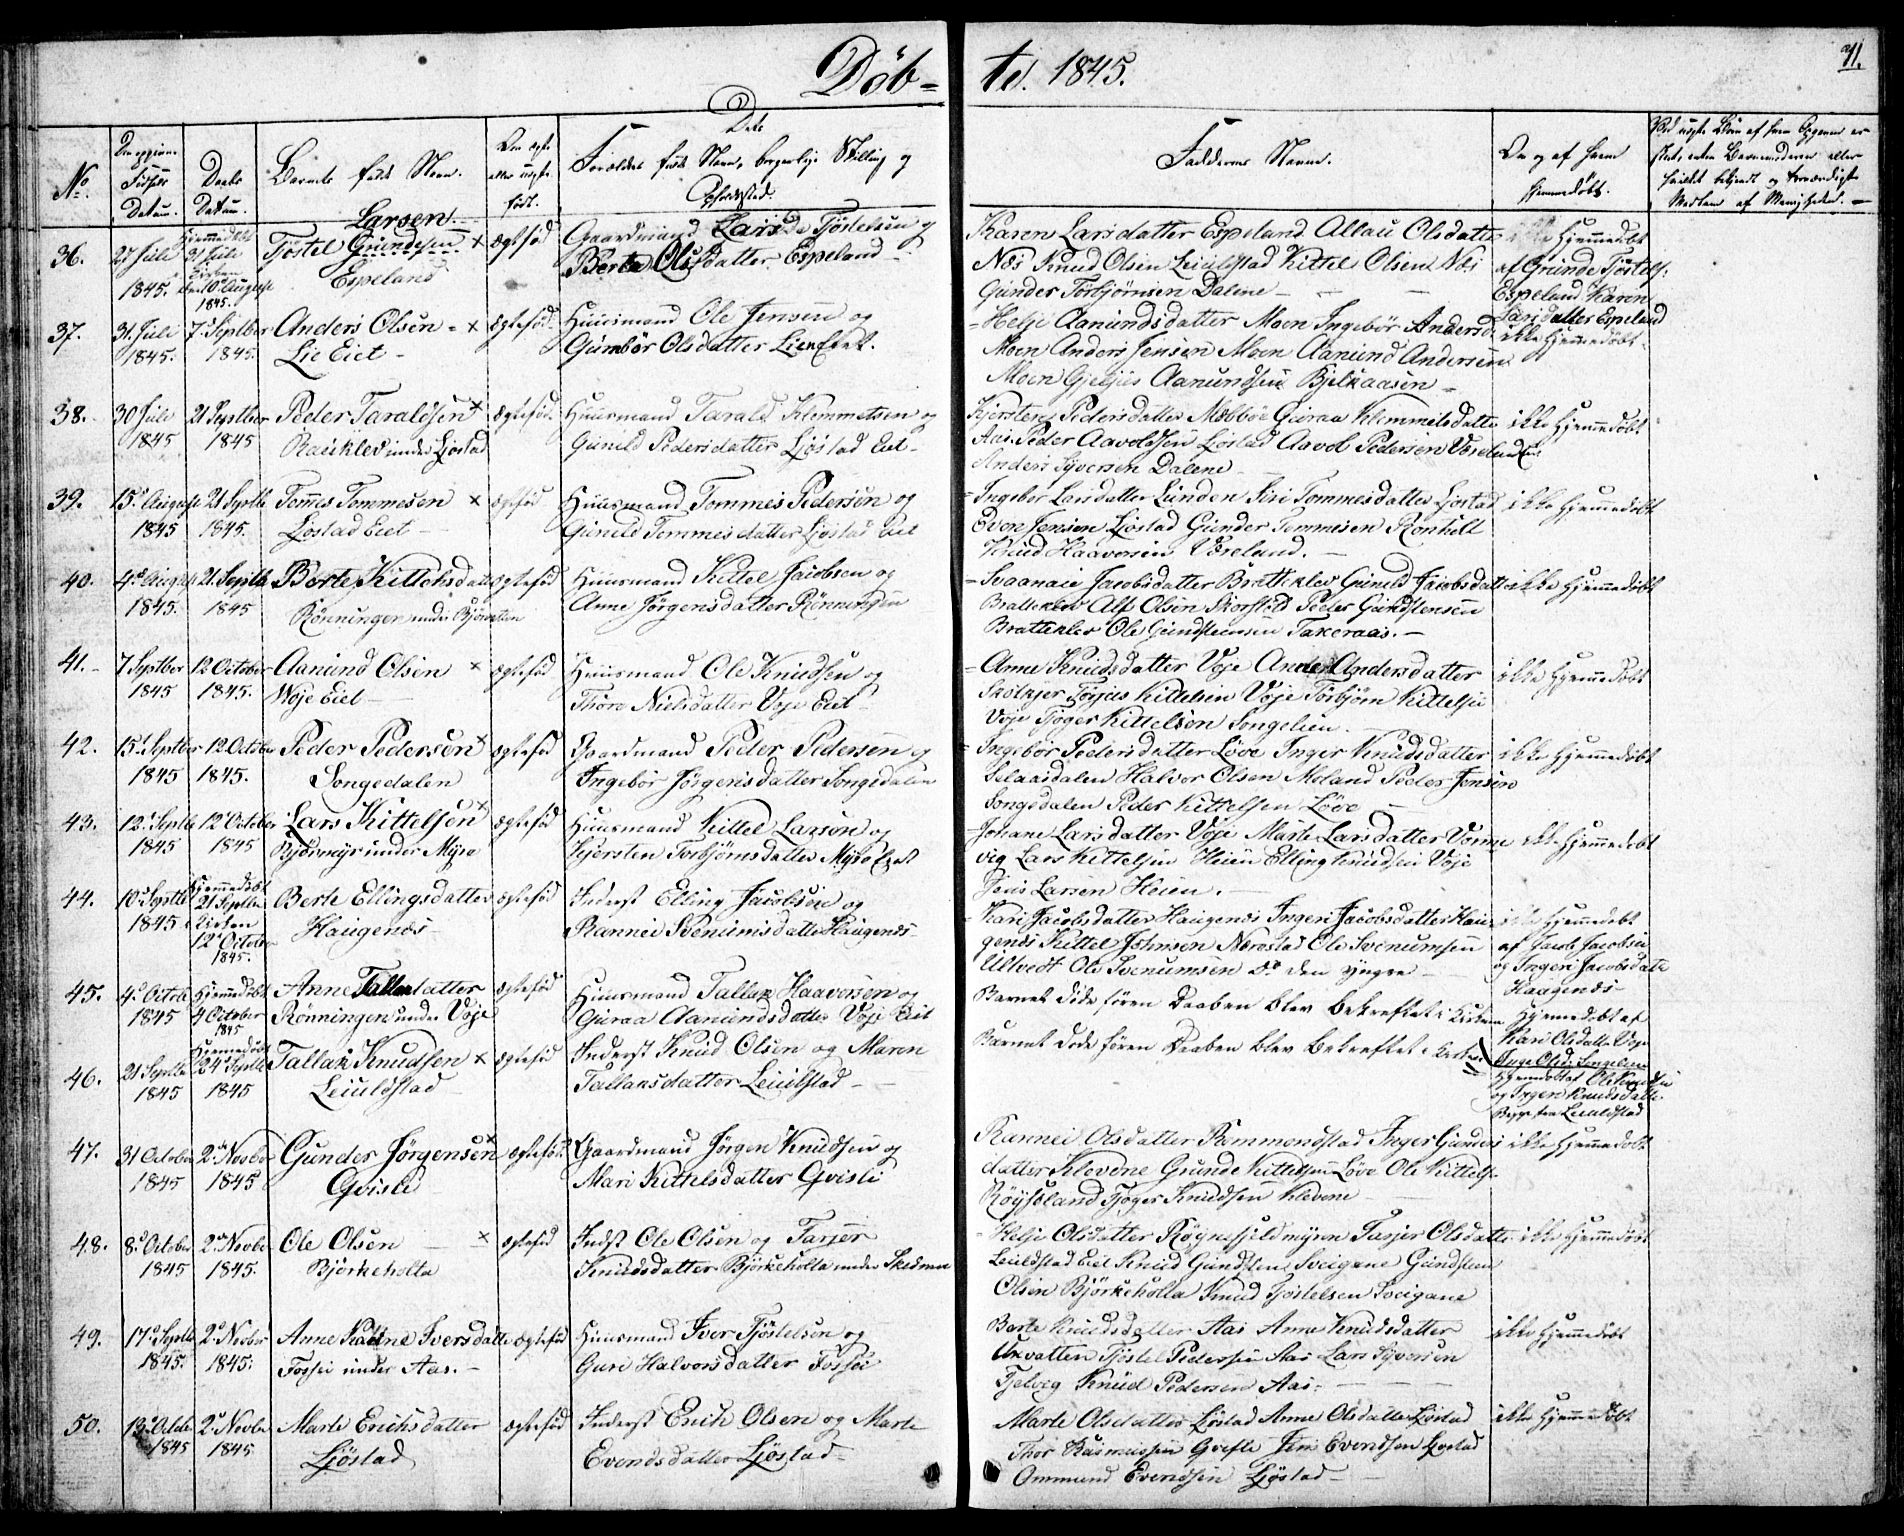 Døb- te. 1845.
71.
Det
No.
Den opgivne Fødsels Datum.
Daabs Datum.
Barnets fulde Navn.
Om ægte eller uægte født.
Forældres fulde Navn, borgerlige Stilling og Opholdssted.
Faddernes Navne.
Om og af hvem hjemmedøbt.
36. 27 Juli 1845.
Hjemmedøbt 27 Juli
Kirken den 10 August 1845.
Larsen
Tjøstel Gundesen ×
Espeland
ægtefød
Gaardmand Lars Tjøstelsen og
Berte Olsdatter Espeland
Karen Larsdatter Espeland Allau Olsdatter
Næs Knud Olsen Leiulstad Kittel Olsen Næs
Gunder Torbjørnsen Dalene
Hjemmedøbt
af Grunde Tjøstels.
Espeland Karen
Larsdatter Espeland
37. 31 Juli 1845.
7 Septber 1845.
Anders Olsen ×
Lie Eiet
ægtefød
Huusmand Ole Jensen og
Gumbor Olsdatter Lien Eiet.
Helje Aanundsdatter Moen Ingebor Andersd.
Moen Anders Jensen Moen Aanund Andersen
Moen Gjeljus Aanundsen Bjelkaasen
ikke Hjemmedøbt
38. 30 Juli 1845
21 Septber 1845
Peder Taraldsen ×
Rauklev under Ljøstad
ægtefød
Huusmand Tarald Klemmetsen og
Gunild Pedersdatter Ljøstad Eiet
Kjersten Pedersdatter Mæbbøe Guraa Klemmetsdatter
Aas Peder Aavoldsen Ljøstad Aavol Pedersen Væreland
Anders Syversen Dalene
ikke Hjemmedøbt
39. 15 August 1845
21 Septb 1845.
Tomes Tommesen ×
Ljøstad Eiet
ægtefød
Huusmand Tommes Pedersen og
Gunild Tommesdatter Ljøstad Eiet
Ingebor Larsdatter Lunden Siri Tommesdatter Ljøstad
Even Jensen Ljøstad Gunder Tommesen Ronhelt
Knud Haaversen Væreland.
ikke Hjemmedøbt
40. 4 August 1845.
21 Septb 1845
Berte Kittelsdatt
Rønningen under Bjørnsten
ægtefød
Huusmand Kittel Jacobsen og
Anne Jørgensdatter Rønningen
Svaanaue Jacobsdatter Bratteklev Gunild Jacobsdatter
Bratteklev Alf Olsen Skorstøl Peder Gundstensen
Bratteklev Ole Gundstensen Takeraas.
ikke Hjemmedøbt
41. 7 Septber 1845
12 October 1845.
Aanund Olsen ×
Woje Eiet
ægtefød
Huusmand Ole Knudsen og
Thore Nielsdatter Voje Eiet
Anne Knudsdatter Voje Anne Andersdatter
Skolkjer Tarjus Kittelsen Voje Torbjørn Kittelsen
Voje Tjøger Kittelsen Songelien.
ikke Hjemmedøbt
42. 15 Septber 1845
12 October 1845.
Peder Pedersen ×
Songedalen
ægtefød
Gaardmand Peder Pedersen og
Ingebor Jørgensdatter Songedalen
Ingebor Pedersdatter Løve Inger Knudsdatter
Selaasdalen Halvor Olsen Moland Peder Jensen
Songedalen Peder Kittelsen Løve
ikke Hjemmedøbt
43. 12 Septb 1845
12 October 1845
Lars Kittelsen ×
Bjørmyr under Myre
ægtefød
Huusmand Kittel Larsen og
Kjersten Torbjørnsdatter Myre Eiet
Johane Larsdatter Voje Marte Larsdatter Vorme
vig Lars Kittelsen Heien Elling Knudsen Voje
Jens Larsen Heien.
ikke Hjemmedøbt
44. 10 Septb 1845
Hjemmedøbt 21 Septber
Kirken 12 October 1845.
Berte Ellingsdatter
Haugenes
ægtefød
Inderst Elling Jacobsen og
Rannei Svenumsdatter Haugenes
Kari Jacobsdatter Haugenes Ingeri Jacobsdatter Hau-
genes Kittel Johnsen Nærestad Ole Svenumsen
Ultvedt Ole Svenumsen Do den yngre
Hjemmedøbt
af Jacob Jacobsen
og Ingeri Jacobsdatter
Haagenes
45. 4 Octob 1845
Hjemmedøbt 4 October 1845
Anne Tallaksdatter
Rønningen under Voje
ægtefød
Huusmand Tallak Haaversen og
Guraa Aanundsdatter Voje Eiet
Barnet døde føren Daaben blev bekreftet i Kirken
Hjemmedøbt af
Kari Olsdatter Voje
Inge Olsd. Songelien
46. 21 Septb 1845
Hjemmedøbt 24 Septb 1845
Tallak Knudsen ×
Leiulstad
ægtefød
Inderst Knud Olsen og Maren
Tallaksdatter Leiulstad
Barnet døde føren Daaben blev bekreftet i Kirken
Hjemdøbt af Ole Knudsen
og Ingeri Knudsdatter
Begge fra Leiulstad
47. 31 October 1845
2 Novber 1845
Gunder Jørgensen ×
Gvisle
ægtefød
Gaardmand Jørgen Knudsen og
Mari Kittelsdatter Gvisle
Rannei Olsdatter Rommundstad Inger Gunders
datter Klevene Grunde Kittelsen Løve Ole Kittels.
Røysland Tjøger Knudsen Klevene
ikke Hjemmedøbt
48. 8 October 1845
2 Novbe 1845.
Ole Olsen ×
Bjørkeholta
ægtefød
Indst Ole Olsen og Tarjer
Knudsdatter Bjørkeholta under Skedmoe
Helje Olsdatter Røgnefjeldmyren Tarjer Olsdatter
Leiulstad Eiet Knud Gundsten Sveigane Gundsten
Olsen Bjørkeholta Knud Tjøstelsen Sveigane
ikke Hjemmedøbt
49. 17 Septb 1845.
2 Novber 1845.
Anne Katrine Iversdatter
Fossei under Aas.
ægtefød
Huusmand Iver Tjøstelsen og
Guri Halvorsdatter Fossei
Berte Knudsdatter Aas Anne Knudsdatter
Uxvatten Tjøstel Pedersen Aas Lars Syversen
Tjelvig Knud Pedersen Aas
ikke Hjemmedøbt
50. 13 Octbe 1845
2 Novbe 1845
Marte Erichsdatter
Ljøstad
ægtefød
Inderst Erich Olsen og Marte
Evendsdatter Ljøstad
Marte Olsdatter Ljøstad Anne Olsdatter Ljøstad
Thor Rasmussen Gvisle Jens Evendsen Ljøstad
Ommund Evendsen Ljøstad
ikke Hjemmedøbt